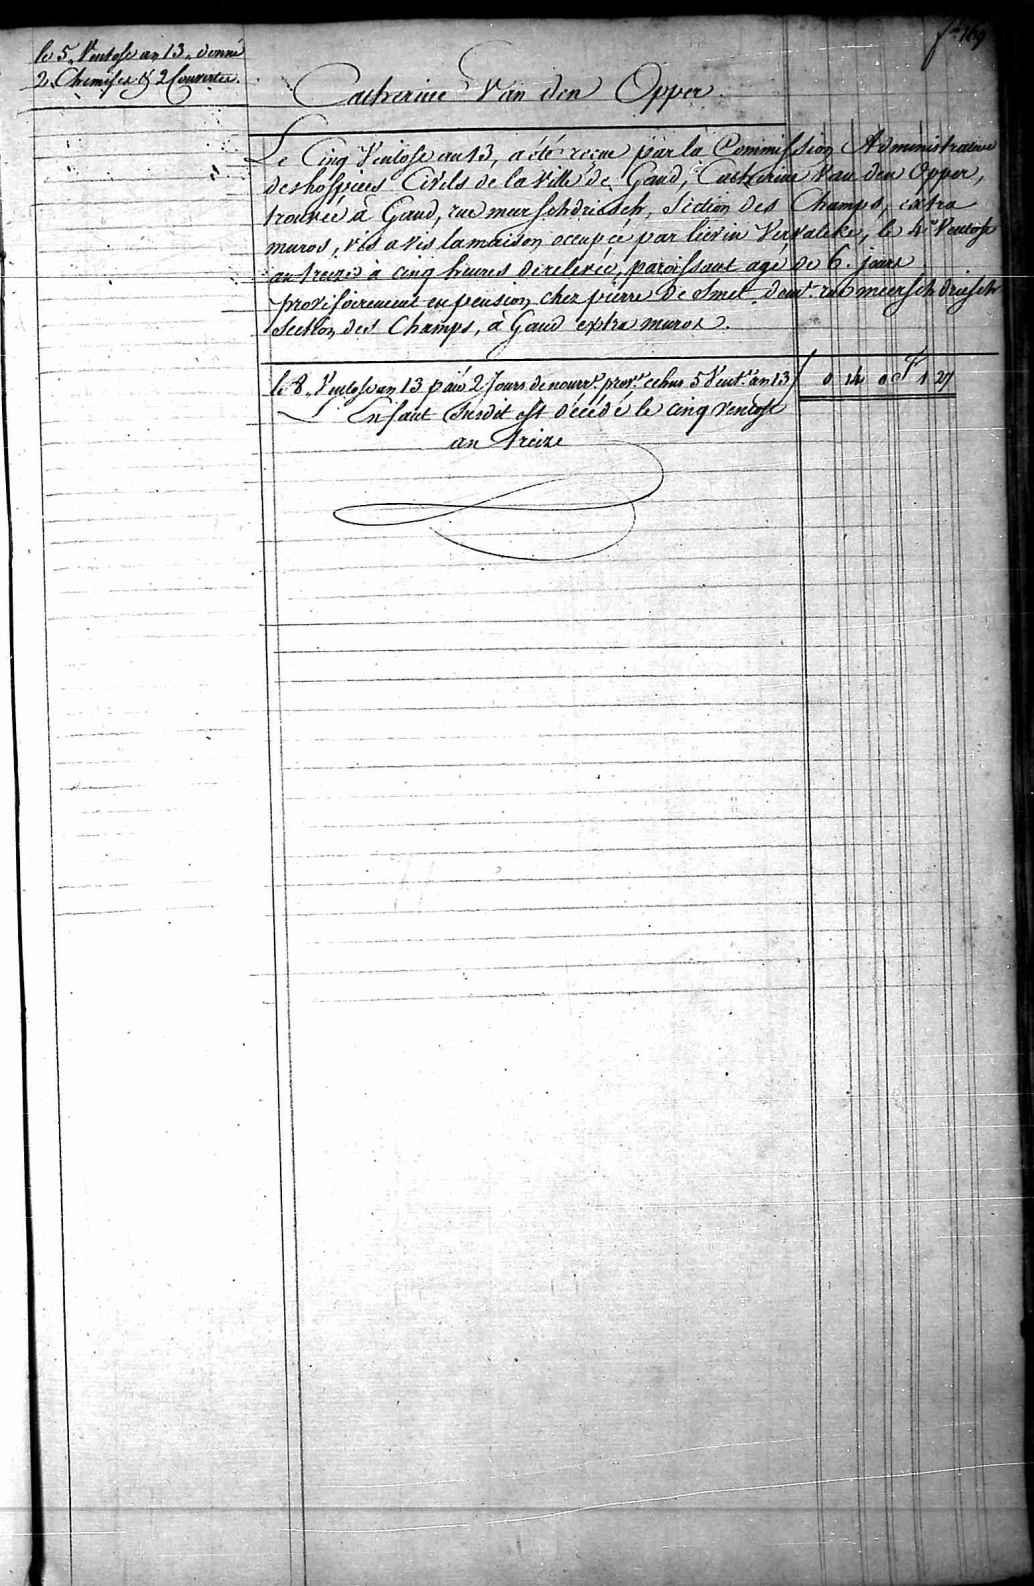 fo 769
le 5 Ventose an 13 donné
2 Chemises & 2 Couvertes.
Catherine Van den Opper.
Le Cinq Ventose an 13, a été reçue par la Commission Administrative
des hospices Civils de la Ville de Gand, Catherine Van den Opper,
trouvée à Gand, rue meerschdriesch, Section des Champs, extra
muros, vis a vis la maison occupée par lievin Vervaleke, le 4e Ventose
an treize à cinq heures de relevée, paroissant age de 6 jours
provisoirement en pension chez pierre De Smet demt. rue meerschdriesch
Section des Champs, à Gand extra muros.
le 8 Ventose an 13 paié 2 Jours de nourre. prove. echus 5 Vente. an 13 0 14 0 1 27
L'Enfant Susdit est décédé le cinq ventose
an treize